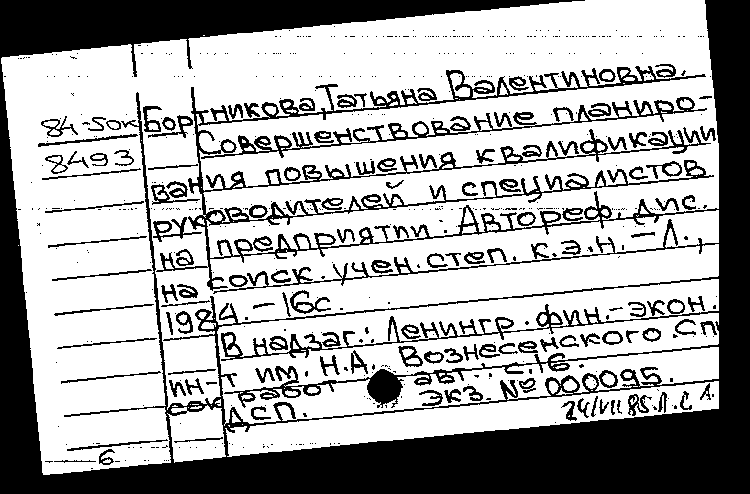 84-5ок Бортникова, Татьяна Валентиновна.
8493 Совершенствование планиро-
вания повышения квалификации
руководителей и специалистов
на предприятии: Автореф. дис.
на соиск. учен. степ. к.э.н. – Л.,
1984. – 16с.
В надзаг.: Ленингр. фин.-экон.
ин-т им. Н.А. Вознесенского. Спи
сок работ авт.: с.16.
ДСП. экз. № 000095.
24/VII 85.Л.С Л.
6